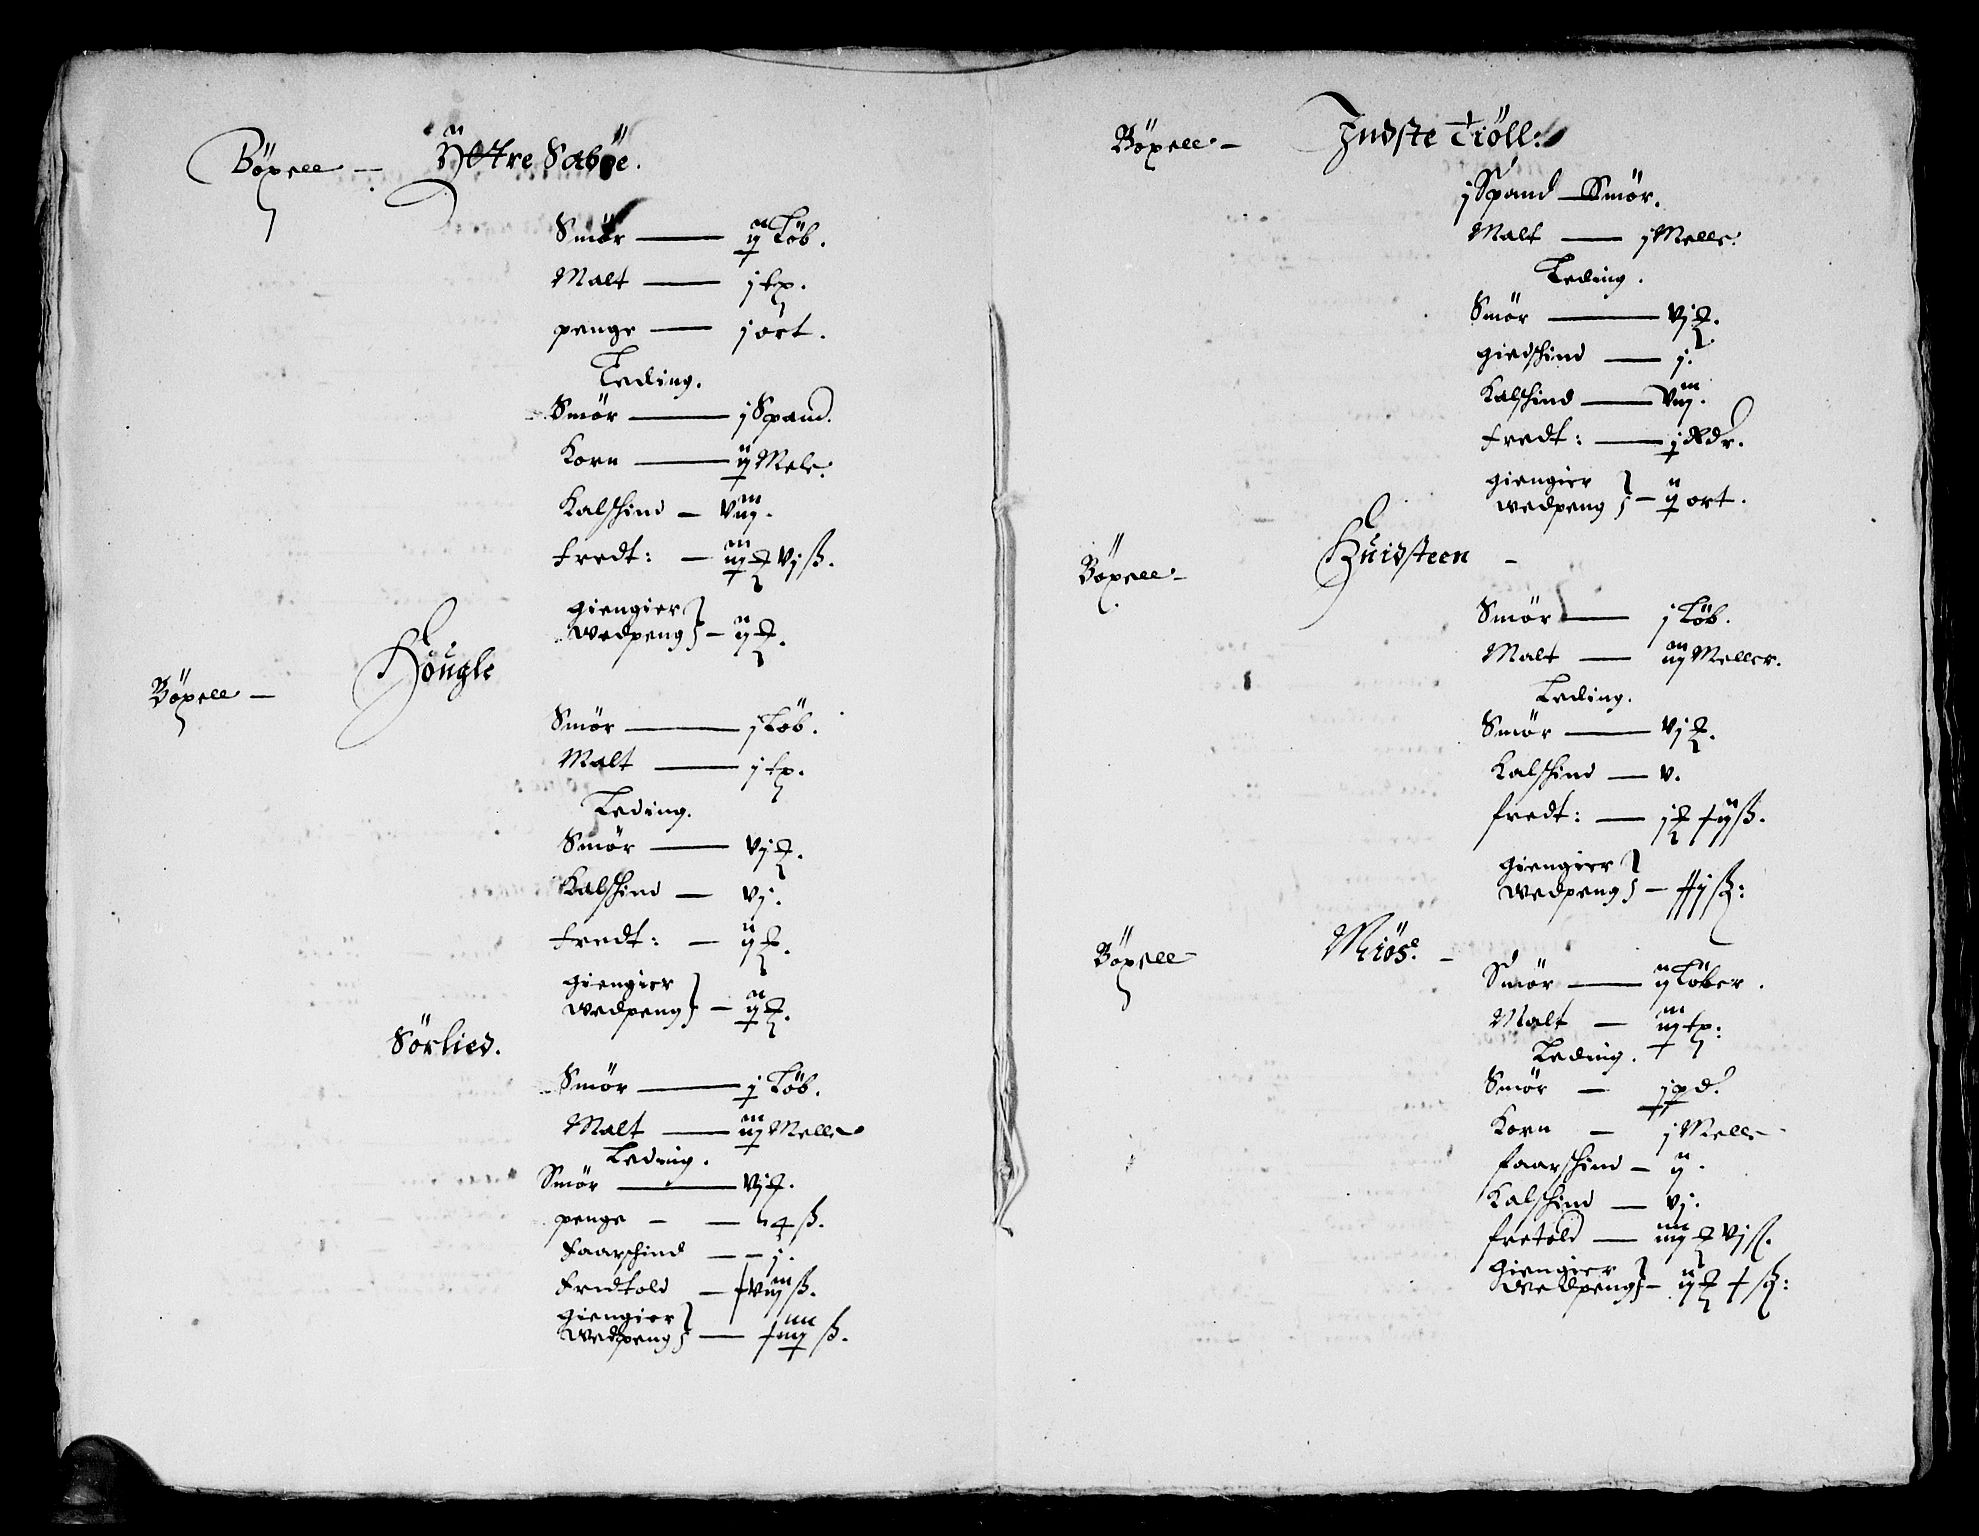 Böxell — Ÿttre Sabøe.
Smör — ij Löb.
Malt — j tp.
penge — j ort.
Leding.
Smör — j Spand.
Korn — ij Mele:
Kalfskind — viij.
Fredt: — iij ₰ vj ß.
Giengier
Wedpeng — ij ₰.
Böxell — Höugle
Smör — j Löb.
Malt — j tp.
Leding.
Smör — vj ₰.
Kalfskind — vj.
Fredt: — ij ₰.
Giengier
Wedpeng — ij ₰.
Sörlied.
Smör — j Löb.
Malt — iij Melle
Leding.
Smör — vj ₰.
penge — 4 ß.
Faarskind — j.
Fredtold — xviij ß.
Giengier
Wedpeng — xiiij ß.
Böxell — Indste Tiöll:
j Spand Smör.
Malt — j Melle:
Leding.
Smör — vj ₰.
Giedskind — j.
Kalfskind — viij.
Fredt: — j Rdr.
Giengier
Wedpeng — ij ort.
Böxell — Huidsteen —
Smör — j Löb.
Malt — iij Meller.
Leding.
Smör — vj ₰.
Kalfskind — v.
fredt: — j ₰ xij ß.
Giengier
Wedpeng — xxj ß:
Böxell — Miös. —
Smör — ij Löber.
Malt — iij tp:
Leding.
Smör — j pd.
Korn — j Melle
faarskind — ij.
Kalfskind — vj.
fretold — iiij ₰ vj ß.
Giengier
Wedpeng — ij ₰ x ß: